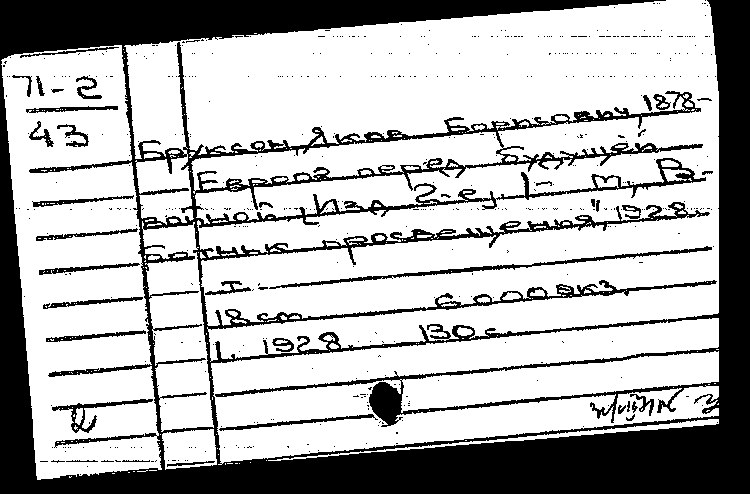 71-2
43
Бруксон, Яков Борисович, 1878-
Европа перед будущей
войной, [Изд. 2-е]. [- м, Ра-
ботник просвещения", 1928.
I.
18 cm. 6000 экз.
1. 1928. 130 с.